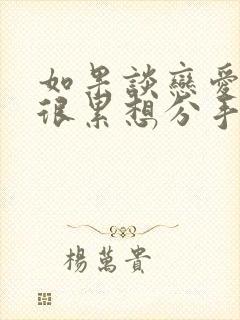 如果談戀愛
很累想分手
楊萬貴